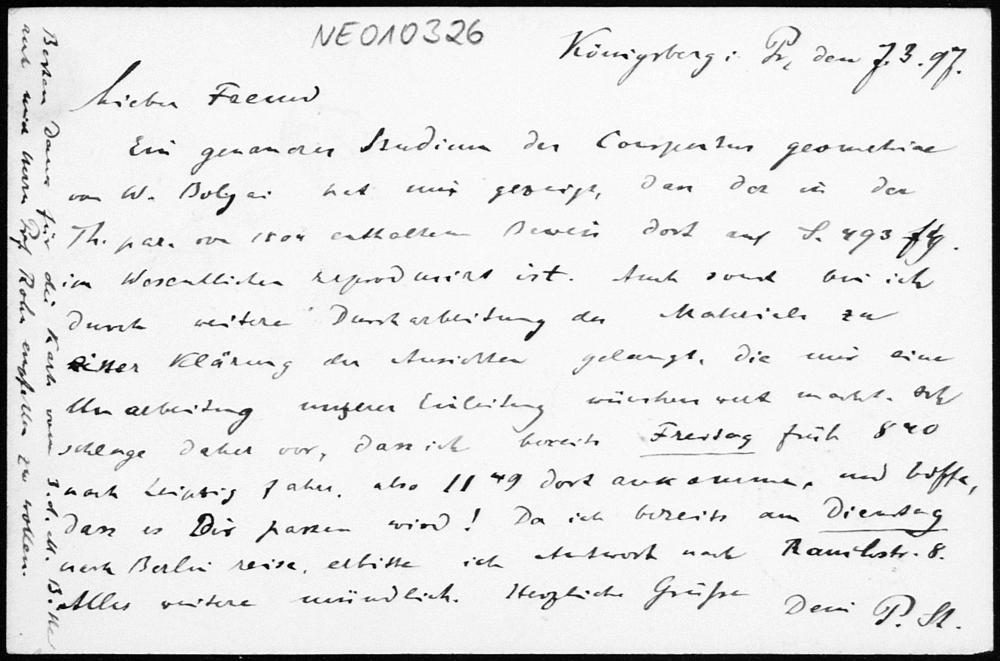 NE010326
Königsberg i. Pr, den 7.3.97.
Lieber Freund
Ein genaueres Studium des Conspectus geometriae
von W. Bolyai hat mir gezeigt, dass der in der
Th. par. von 1804 enthaltene Beweis dort auf S. 493 fg.
im Wesentlichen reproduzirt ist. Auch sonst bin ich
durch weitere Durcharbeitung des Materials zu
einer Klärung der Ansichten gelangt, die mir eine
Umarbeitung unserer Einleitung wünschenswert macht. Ich
schlage daher vor, dass ich bereits Freitag früh 8 40
nach Leipzig fahre, also 11 49 dort ankomme, und hoffe,
dass es Dir passen wird! Da ich bereits am Dienstag
nach Berlin reise, erbitte ich Antwort nach 8.
Alles weitere mündlich. Herzliche Grüsse
Dein P. St.
Besten Dank für die Karte vom 3. d. M. Bitte
auch mich Herrn Prof Rohn empfehlen zu wollen.